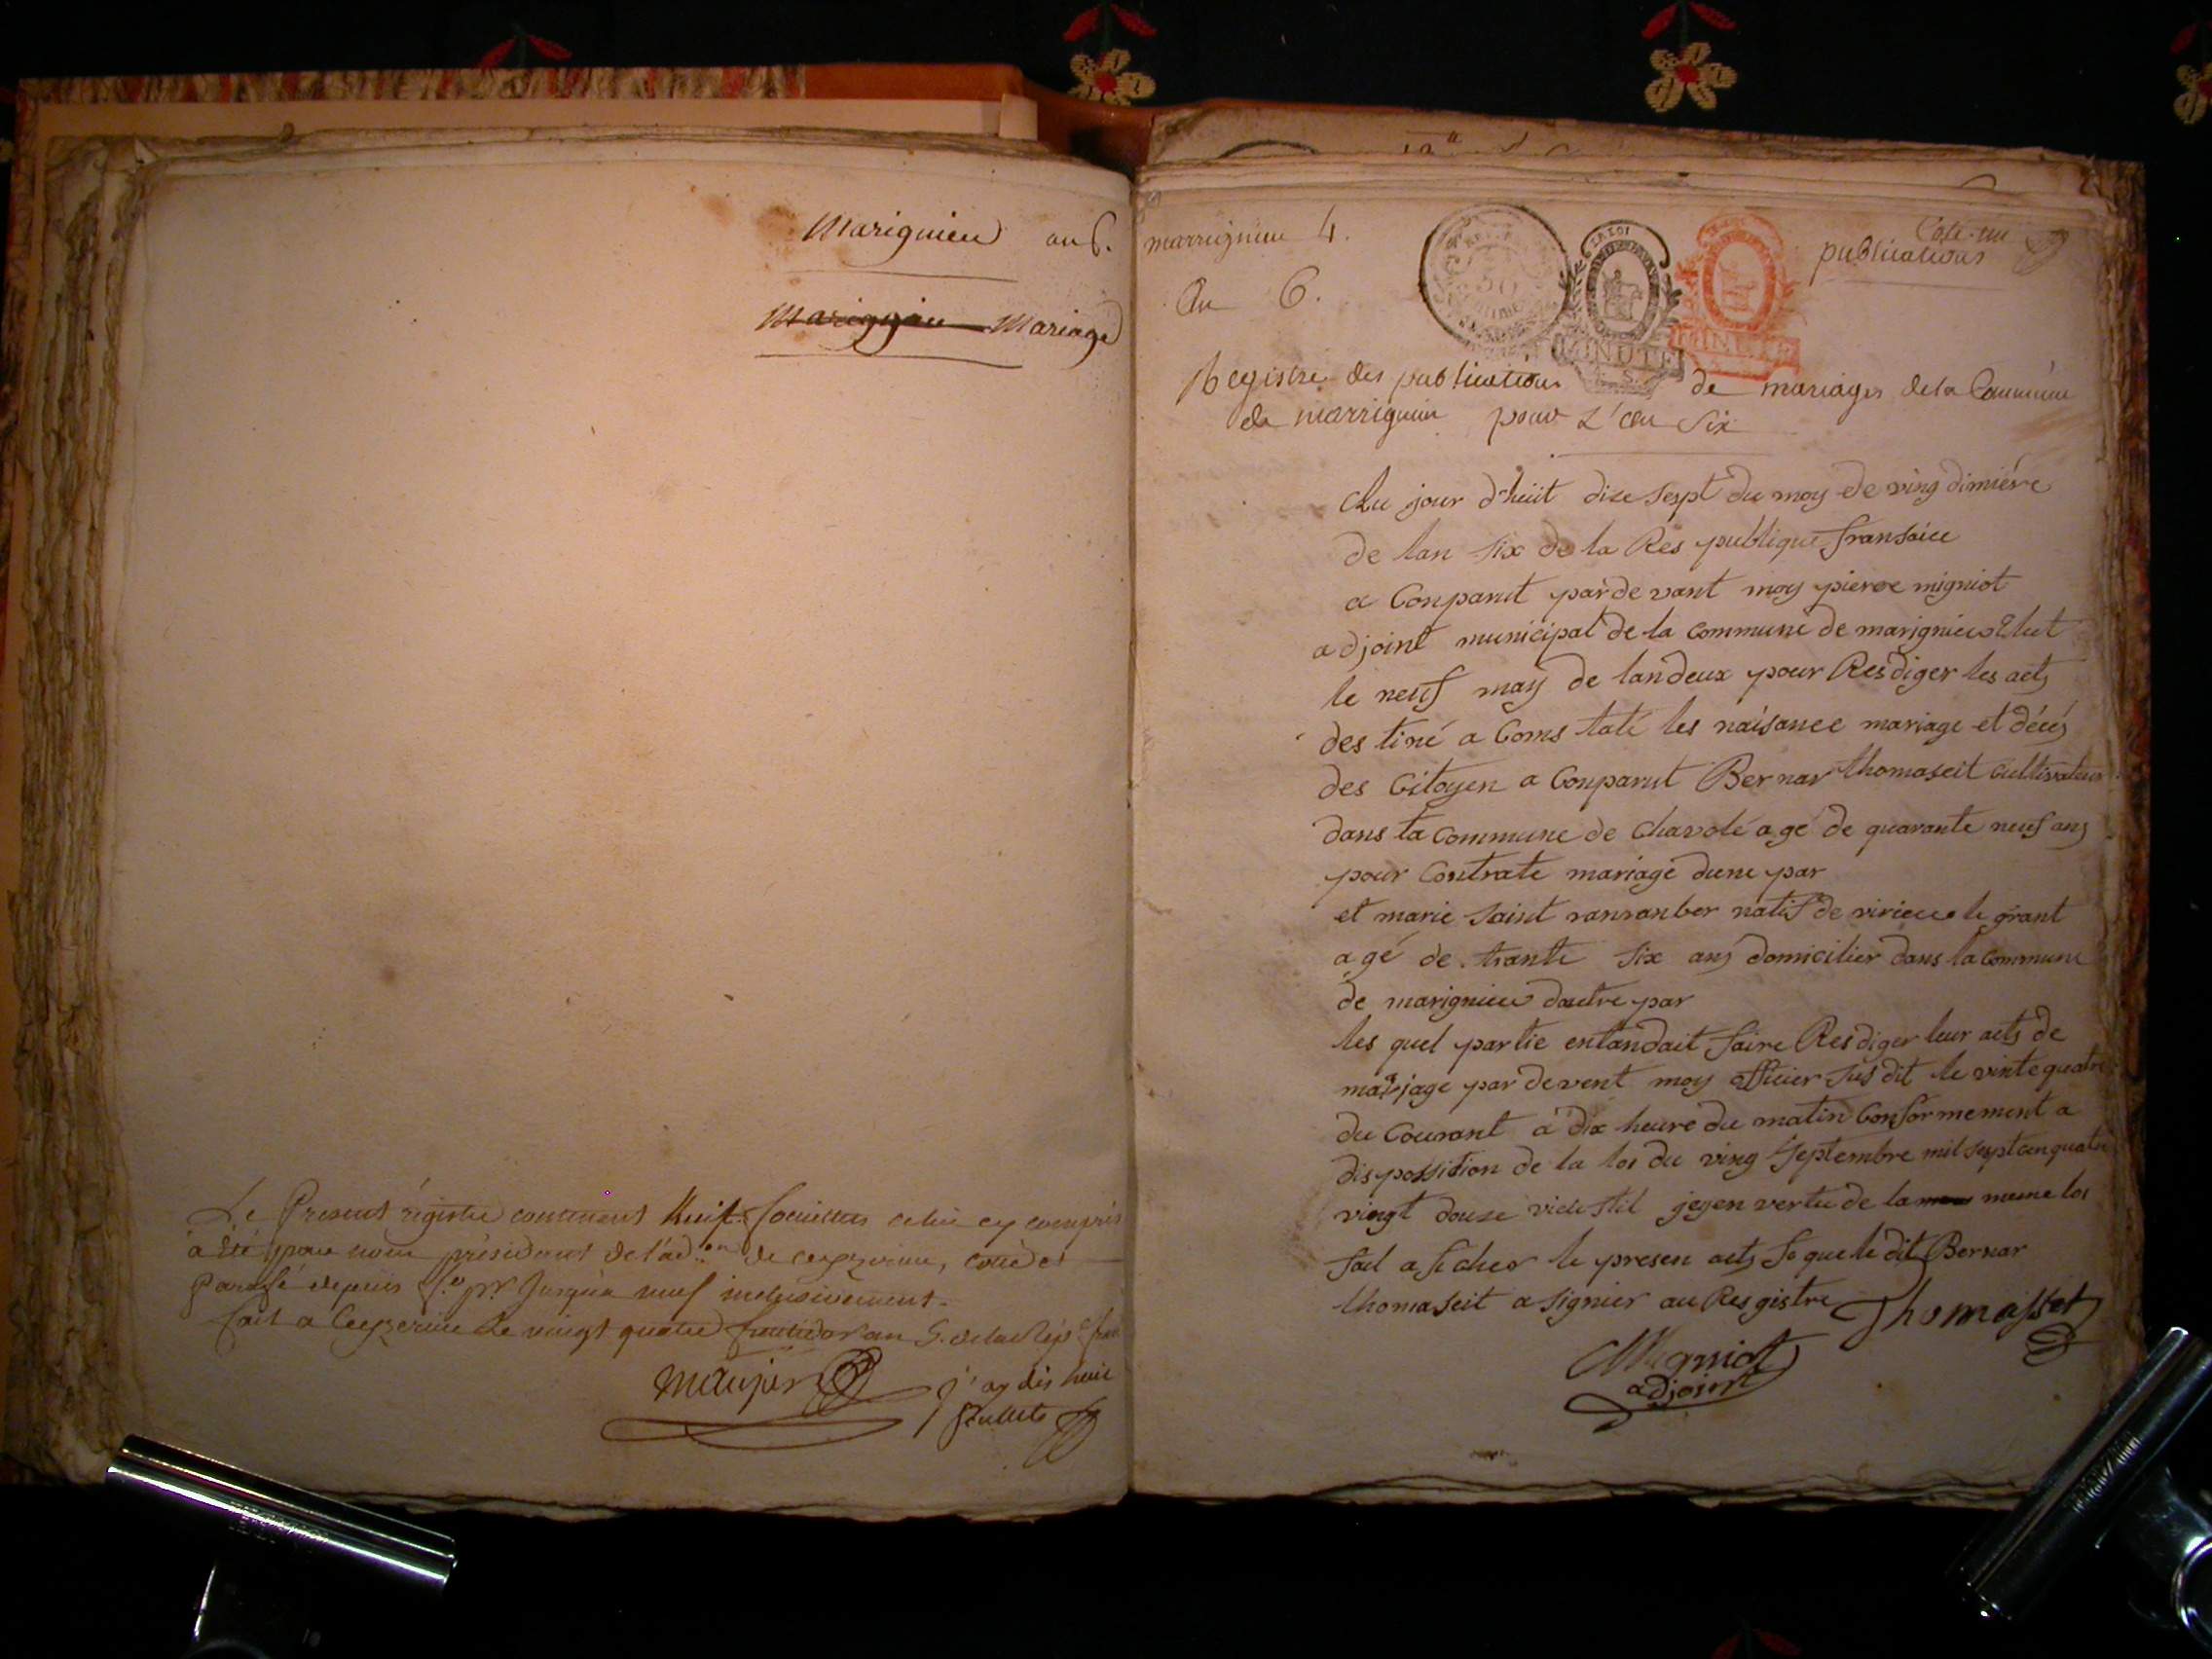 Marignieu an 6.
Marignieu Mariage
Le Present régistre contenant huit feuillets celui cy compris
a été par nous président de l'ad.on de ceyzerieu, coté et
Paraphé depuis f.o pr. Jusqu'a neuf inclusivement.
fait a Ceyzerieu Le vingt quatre fructidor an 5. de la Rép.e fran
maujer
j'ay dis huit
marrignieu 4.
An 6.
Cote. un
publications
50
LA LOI
MINUTE
Registre des publications de mariages de la Commune
de marrignieu pour L'an Six
Au jour d'huit dise sept du moy de ving dimiére
de lan six de la Res publique fransaice
a Conparut par de vant moy pierre migniot
adjoint municipal de la commune de marignieu Elut
le neuf may de lan deux pour Resdiger les acts
des tiné a Coms taté les naisance mariage et décés
des Citoyen a Conparut Bernar thomaseit cultivateur
dans ta commune de Chavolé agé de quarante neuf ans
pour Contrate mariage dune par
et marie saint ranranber natif de virieu le grant
agé de trante six ans domicilier dans la commune
de marignieu dautre par
les quel partie entandait faire Resdiger leur acts de
mariage par devent moy officier sus dit le vinte quatre
du Courant a dix heure du matin Conformement a
dispossidion de la loi du ving septembre mil sept cen quatre
vingt douse vieu stil jeyen vertu de la meme loi
fait aficher le presen acts se que le dit Bernar
thomaseit a signier au Resgistre Thomasset
Migniot
adjoint